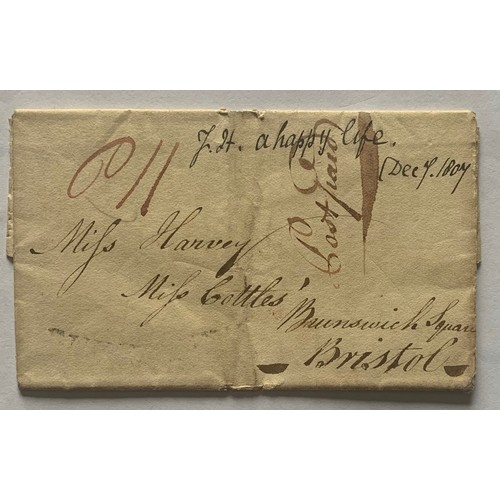 J.H. a happy life.
(Dec 7. 1807
P 11
Post paid
Miſs Harvey
Miſs Cottles'
Brunswich Square
Bristol